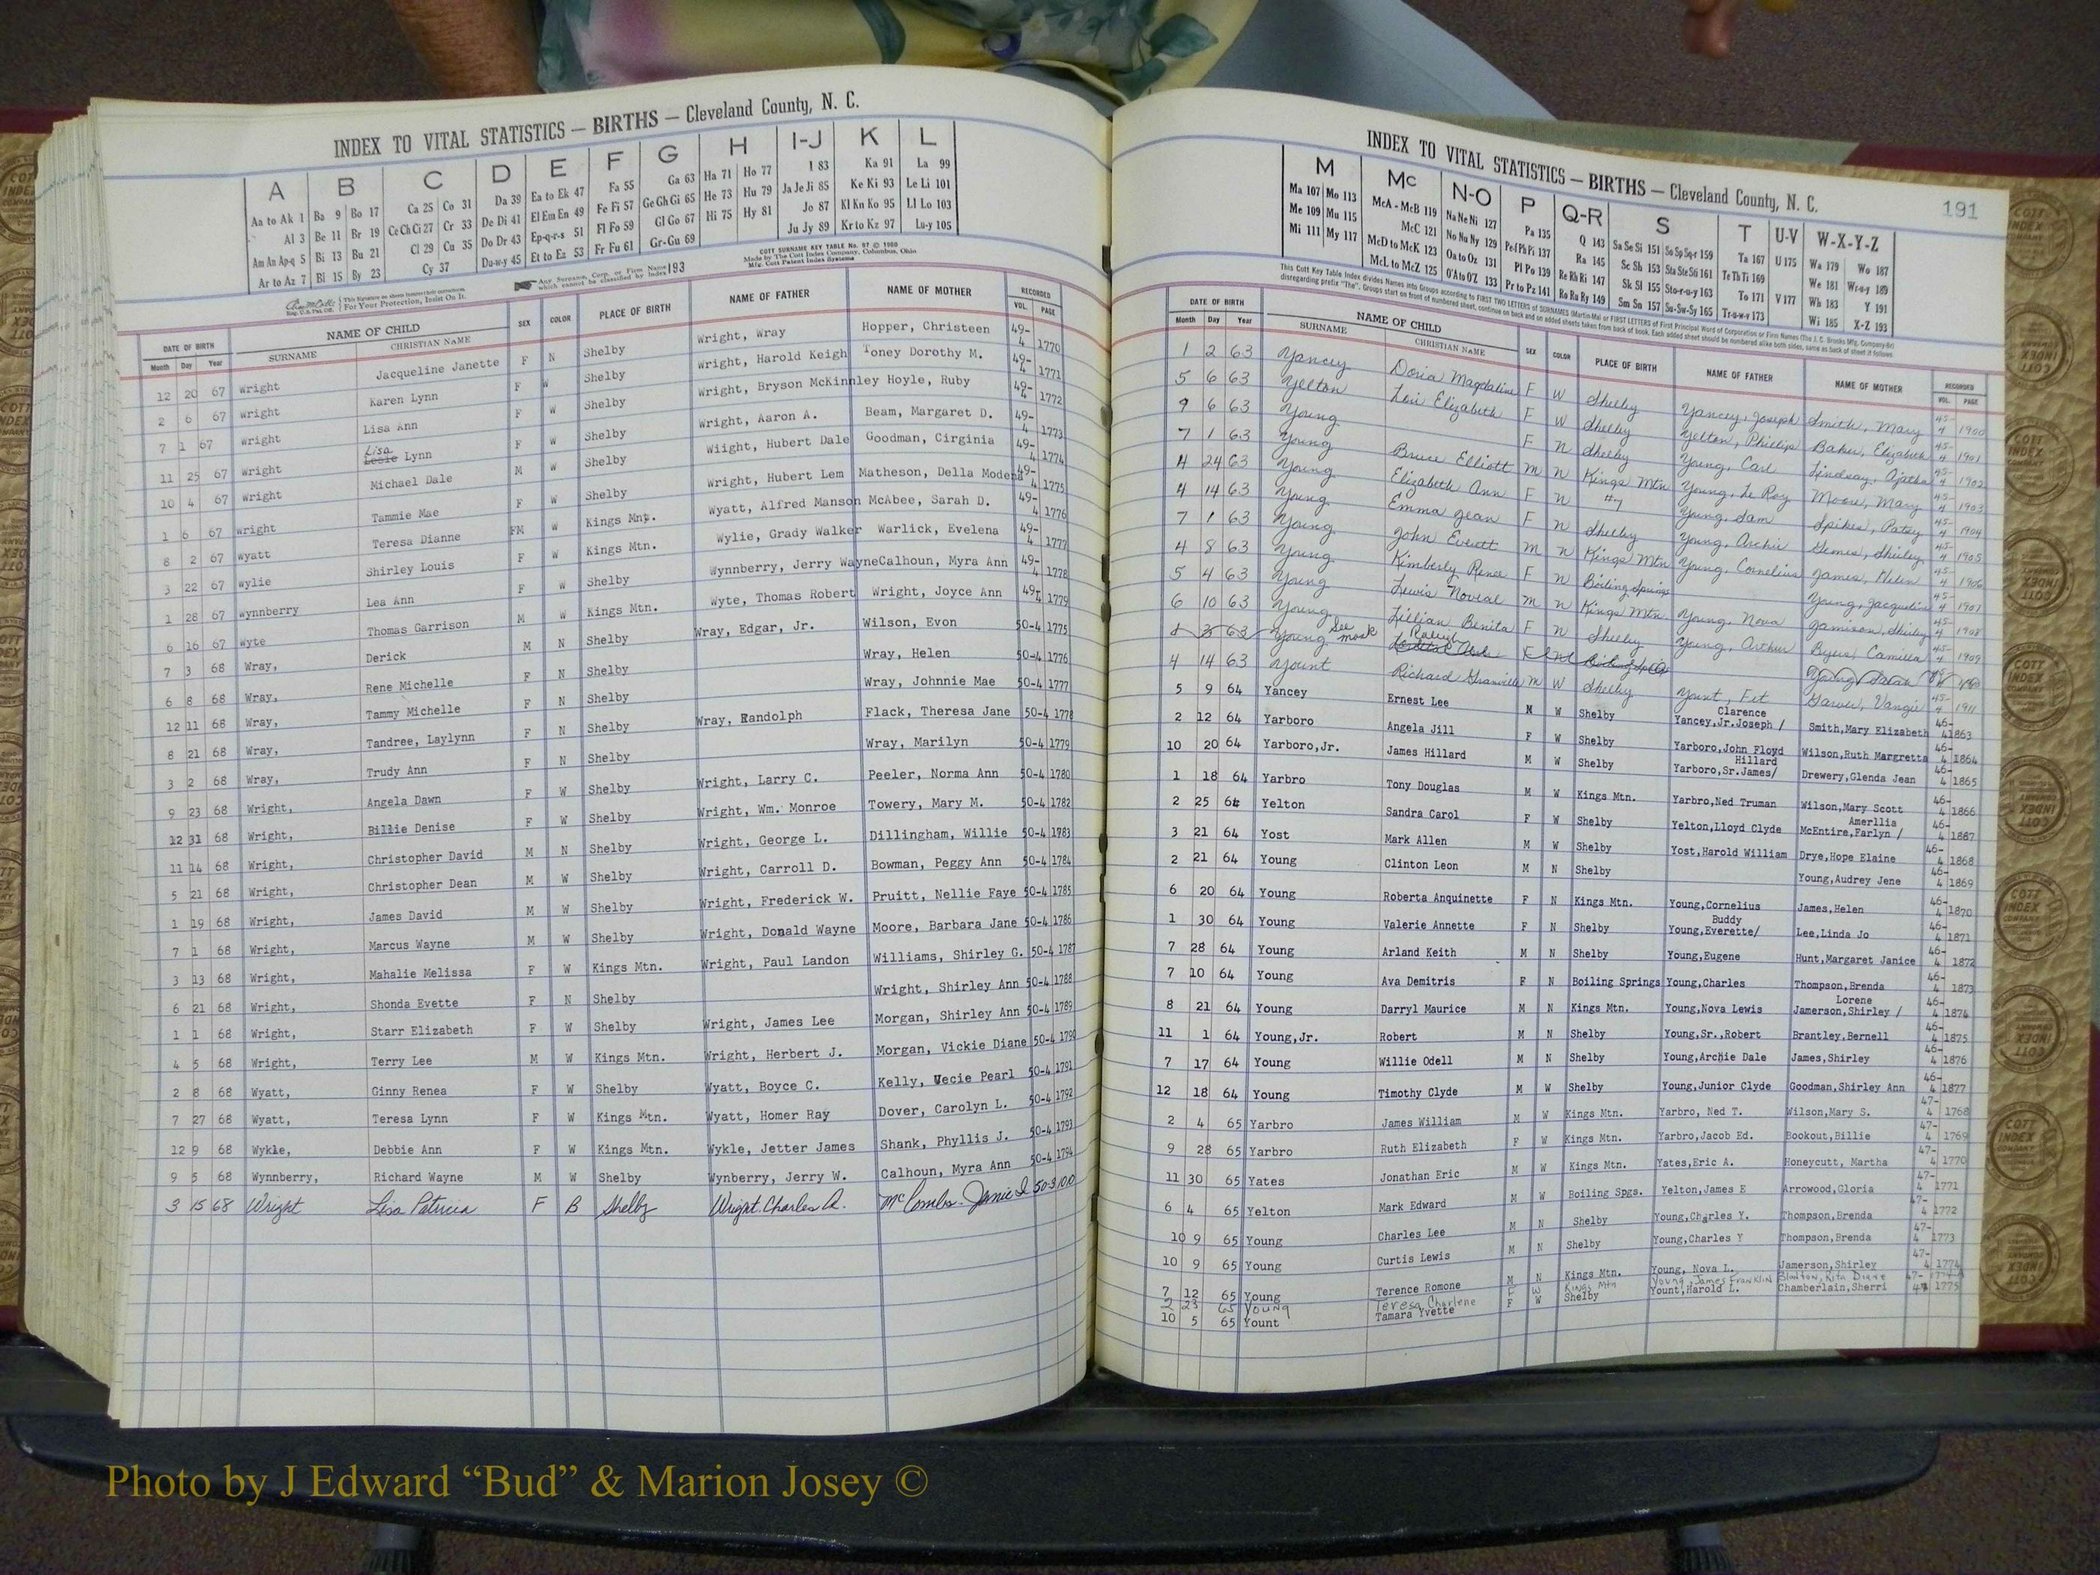 INDEX TO VITAL STATISTICS — BIRTHS — Cleveland County, N. C.
A B C D E F G H I-J K L
Aa to Ak 1 Ba 9 Bo 17 Ca 25 Co 31 Da 39 Ea to Ek 47 Fa 55 Ga 63 Ha 71 Ho 77 I 83 Ka 91 La 99
Al 3 Be 11 Br 19 Ce Ch Ci 27 Cr 33 De Di 41 El Em En 49 Fe Fi 57 Ge Gh Gi 65 He 73 Hu 79 Ja Je Ji 85 Ke Ki 93 Le Li 101
Am An Ap-q 5 Bi 13 Bu 21 Cl 29 Cu 35 Do Dr 43 Ep-q-r-s 51 Fl Fo 59 Gl Go 67 Hi 75 Hy 81 Jo 87 Kl Kn Ko 95 Ll Lo 103
Ar to Az 7 Bi 15 By 23 Cy 37 Du-w-y 45 Et to Ez 53 Fr Fu 61 Gr-Gu 69 Ju Jy 89 Kr to Kz 97 Lu-y 105
COTT SURNAME KEY TABLE No. 97 © 1960
Made by The Cott Index Company, Columbus, Ohio
Mfg. Cott Patent Index Systems
For Your Protection, Insist On It.
Any Surname, Corp. or Firm Name which cannot be classified by Index 193
DATE OF BIRTH NAME OF CHILD SEX COLOR PLACE OF BIRTH NAME OF FATHER NAME OF MOTHER RECORDED
Month Day Year SURNAME CHRISTIAN NAME VOL. PAGE
12 20 67 Wright Jacqueline Janette F N Shelby Wright, Wray Hopper, Christeen 49-4 1770
2 6 67 Wright Karen Lynn F W Shelby Wright, Harold Keigh Toney Dorothy M. 49-4 1771
7 1 67 Wright Lisa Ann F W Shelby Wright, Bryson McKinnley Hoyle, Ruby 49-4 1772
11 25 67 Wright Lisa Lynn F W Shelby Wright, Aaron A. Beam, Margaret D. 49-4 1773
10 4 67 Wright Michael Dale M W Shelby Wiight, Hubert Dale Goodman, Cirginia 49-4 1774
1 6 67 Wright Tammie Mae F W Shelby Wright, Hubert Lem Matheson, Della Modena 49-4 1775
8 2 67 Wyatt Teresa Dianne FM W Kings Mnt. Wyatt, Alfred Manson McAbee, Sarah D. 49-4 1776
3 22 67 Wylie Shirley Louis F W Kings Mtn. Wylie, Grady Walker Warlick, Evelena 49-4 1777
1 28 67 Wynnberry Lea Ann F W Shelby Wynnberry, Jerry Wayne Calhoun, Myra Ann 49-4 1778
6 16 67 Wyte Thomas Garrison M W Kings Mtn. Wyte, Thomas Robert Wright, Joyce Ann 49-4 1779
7 3 68 Wray, Derick M N Shelby Wray, Edgar, Jr. Wilson, Evon 50-4 1775
6 8 68 Wray, Rene Michelle F N Shelby Wray, Helen 50-4 1776
12 11 68 Wray, Tammy Michelle F N Shelby Wray, Johnnie Mae 50-4 1777
8 21 68 Wray, Tandree, Laylynn F N Shelby Wray, Randolph Flack, Theresa Jane 50-4 1778
3 2 68 Wray, Trudy Ann F N Shelby Wray, Marilyn 50-4 1779
9 23 68 Wright, Angela Dawn F W Shelby Wright, Larry C. Peeler, Norma Ann 50-4 1780
12 31 68 Wright, Billie Denise F W Shelby Wright, Wm. Monroe Towery, Mary M. 50-4 1782
11 14 68 Wright, Christopher David M N Shelby Wright, George L. Dillingham, Willie 50-4 1783
5 21 68 Wright, Christopher Dean M W Shelby Wright, Carroll D. Bowman, Peggy Ann 50-4 1784
1 19 68 Wright, James David M W Shelby Wright, Frederick W. Pruitt, Nellie Faye 50-4 1785
7 1 68 Wright, Marcus Wayne M W Shelby Wright, Donald Wayne Moore, Barbara Jane 50-4 1786
3 13 68 Wright, Mahalie Melissa F W Kings Mtn. Wright, Paul Landon Williams, Shirley G. 50-4 1787
6 21 68 Wright, Shonda Evette F N Shelby Wright, Shirley Ann 50-4 1788
1 1 68 Wright, Starr Elizabeth F W Shelby Wright, James Lee Morgan, Shirley Ann 50-4 1789
4 5 68 Wright, Terry Lee M W Kings Mtn. Wright, Herbert J. Morgan, Vickie Diane 50-4 1790
2 8 68 Wyatt, Ginny Renea F W Shelby Wyatt, Boyce C. Kelly, Vecie Pearl 50-4 1791
7 27 68 Wyatt, Teresa Lynn F W Kings Mtn. Wyatt, Homer Ray Dover, Carolyn L. 50-4 1792
12 9 68 Wykle, Debbie Ann F W Kings Mtn. Wykle, Jetter James Shank, Phyllis J. 50-4 1793
9 5 68 Wynnberry, Richard Wayne M W Shelby Wynberry, Jerry W. Calhoun, Myra Ann 50-4 1794
3 15 68 Wright Lisa Patricia F B Shelby Wright. Charles A. McCombs. Janie I 50-3 1010
INDEX TO VITAL STATISTICS — BIRTHS — Cleveland County, N. C.
191
M Mc N-O P Q-R S T U-V W-X-Y-Z
Ma 107 Mo 113 McA - McB 119 Na Ne Ni 127 Pa 135 Q 143 Sa Se Si 151 So Sp Sq-r 159 Ta 167 U 175 Wa 179 Wo 187
Me 109 Mu 115 McC 121 No Nu Ny 129 Pe-f Ph Pi 137 Ra 145 Sc Sh 153 Sta Ste Sti 161 Te Th Ti 169 We 181 Wr-u-y 189
Mi 111 My 117 McD to McK 123 Oa to Oz 131 Pl Po 139 Re Rh Ri 147 Sk Sl 155 Sto-r-u-y 163 To 171 V 177 Wh 183 Y 191
McL to McZ 125 O'A to O'Z 133 Pr to Pz 141 Ro Ru Ry 149 Sm Sn 157 Su-Sw-Sy 165 Tr-u-w-y 173 Wi 185 X-Z 193
This Cott Key Table Index divides Names into Groups according to FIRST TWO LETTERS of SURNAMES (Martin-Ma) or FIRST LETTERS of First Principal Word of Corporation or Firm Names (The J. C. Brooks Mfg. Company-Br)
disregarding prefix "The". Groups start on front of numbered sheet, continue on back and on added sheets taken from back of book. Each added sheet should be numbered alike both sides, same as back of sheet it follows
DATE OF BIRTH NAME OF CHILD SEX COLOR PLACE OF BIRTH NAME OF FATHER NAME OF MOTHER RECORDED
Month Day Year SURNAME CHRISTIAN NAME VOL. PAGE
1 2 63 Yancey Doria Magdaline F W Shelby Yancey, Joseph Smith, Mary 45-4 1900
5 6 63 Yelton Lori Elizabeth F W Shelby Yelton, Phillip Baker, Elizabeth 45-4 1901
9 6 63 Young F N Shelby Young, Carl Lindsay, 45-4 1902
7 1 63 Young Bruce Elliott M N Kings Mtn Young, Le Roy Moore, Mary 45-4 1903
4 24 63 Young Elizabeth Ann F N #7 Young, Sam Spikes, Patsy 45-4 1904
4 14 63 Young Emma Jean F N Shelby Young, Archie James, Shirley 45-4 1905
7 1 63 Young John Everett M N Kings Mtn Young, Cornelius James, Helen 45-4 1906
4 8 63 Young Kimberly Renee F N Boiling Springs Young, Jacqueline 45-4 1907
5 4 63 Young Lewis Noveal M N Kings Mtn. Young, Nova Jamison, Shirley 45-4 1908
6 10 63 Young Lillian Benita F N Shelby Young, Arthur Byers, Camilla 45-4 1909
3 63 Young See Mask
4 14 63 Yount Richard Granville M W Shelby Yount, Garver, Vangie 45-4 1911
5 9 64 Yancey Ernest Lee M W Shelby Yancey,Jr.Joseph / Clarence Smith,Mary Elizabeth 46-4 1863
2 12 64 Yarboro Angela Jill F W Shelby Yarboro,John Floyd Wilson,Ruth Margretta 46-4 1864
10 20 64 Yarboro,Jr. James Hillard M W Shelby Yarboro,Sr.James/ Hillard Drewery,Glenda Jean 46-4 1865
1 18 64 Yarbro Tony Douglas M W Kings Mtn. Yarbro,Ned Truman Wilson,Mary Scott 46-4 1866
2 25 64 Yelton Sandra Carol F W Shelby Yelton,Lloyd Clyde McEntire,Farlyn / Amerllia 46-4 1867
3 21 64 Yost Mark Allen M W Shelby Yost,Harold William Drye,Hope Elaine 46-4 1868
2 21 64 Young Clinton Leon M N Shelby Young,Audrey Jene 46-4 1869
6 20 64 Young Roberta Anquinette F N Kings Mtn. Young,Cornelius James,Helen 46-4 1870
1 30 64 Young Valerie Annette F N Shelby Young,Everette/ Buddy Lee,Linda Jo 46-4 1871
7 28 64 Young Arland Keith M N Shelby Young,Eugene Hunt,Margaret Janice 46-4 1872
7 10 64 Young Ava Demitris F N Boiling Springs Young,Charles Thompson,Brenda 46-4 1873
8 21 64 Young Darryl Maurice M N Kings Mtn. Young,Nova Lewis Jamerson,Shirley / Lorene 46-4 1874
11 1 64 Young,Jr. Robert M N Shelby Young,Sr.,Robert Brantley,Bernell 46-4 1875
7 17 64 Young Willie Odell M N Shelby Young,Archie Dale James,Shirley 46-4 1876
12 18 64 Young Timothy Clyde M W Shelby Young,Junior Clyde Goodman,Shirley Ann 46-4 1877
2 4 65 Yarbro James William M W Kings Mtn. Yarbro, Ned T. Wilson,Mary S. 47-4 1768
9 28 65 Yarbro Ruth Elizabeth F W Kings Mtn. Yarbro,Jacob Ed. Bookout,Billie 47-4 1769
11 30 65 Yates Jonathan Eric M W Kings Mtn. Yates,Eric A. Honeycutt, Martha 47-4 1770
6 4 65 Yelton Mark Edward M W Boiling Spgs. Yelton,James E Arrowood,Gloria 47-4 1771
10 9 65 Young Charles Lee M N Shelby Young,Charles Y. Thompson,Brenda 47-4 1772
10 9 65 Young Curtis Lewis M N Shelby Young,Charles Y Thompson,Brenda 47-4 1773
7 12 65 Young Terence Romone M N Kings Mtn. Young, Nova L. Jamerson,Shirley 47-4 1774
2 23 65 Young Teresa Charlene F W Kings Mtn Young, James Franklin Blanton, Rita Diane 47-
10 5 65 Yount Tamara Yvette F W Shelby Yount,Harold L. Chamberlain,Sherri 47-4 1775
Photo by J Edward “Bud” & Marion Josey ©